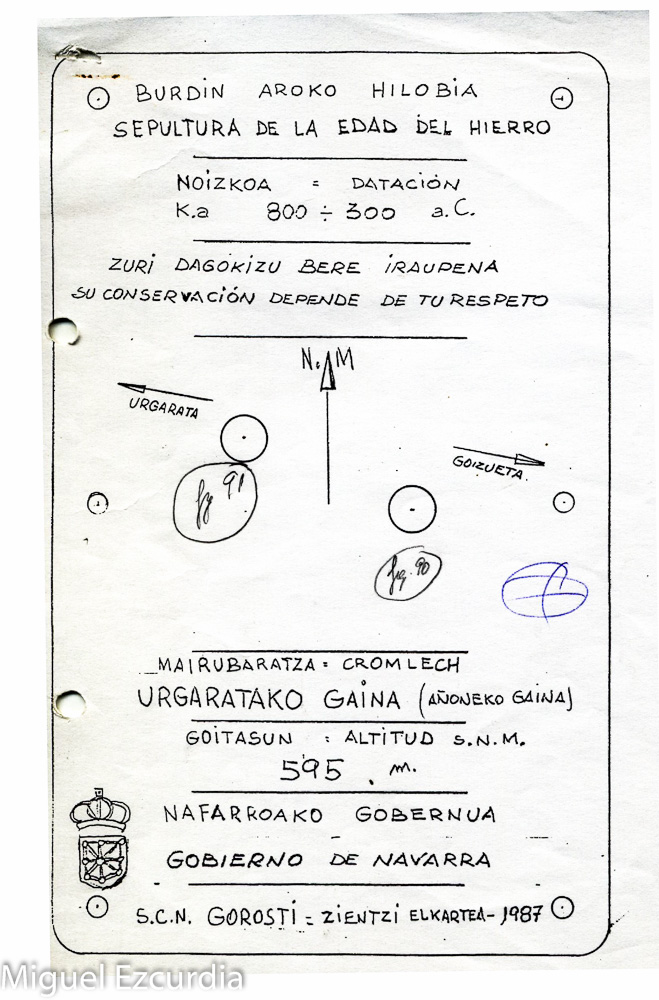 BURDIN AROKO HILOBIA
SEPULTURA DE LA EDAD DEL HIERRO
NOIZKOA = DATACIÓN
K.a 800 ÷ 300 a.C.
ZURI DAGOKIZU BERE IRAUPENA
SU CONSERVACIÓN DEPENDE DE TU RESPETO
N.M
URGARATA
GOIZUETA.
fig 91
fig. 90
MAIRUBARATZA = CROMLECH
URGARATAKO GAINA (AÑONEKO GAINA)
GOITASUN : ALTITUD S.N.M.
595 m.
NAFARROAKO GOBERNUA
GOBIERNO DE NAVARRA
S.C.N. GOROSTI = ZIENTZI ELKARTEA - 1987
Miguel Ezcurdia